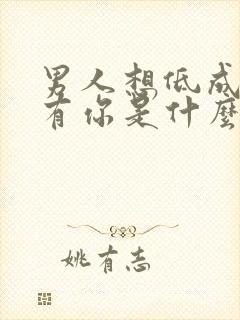 男人想低成
有你是什麼
姚有志